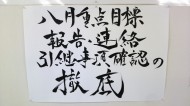 八月重点目標
報告、連絡
引継事項確認の
撤底